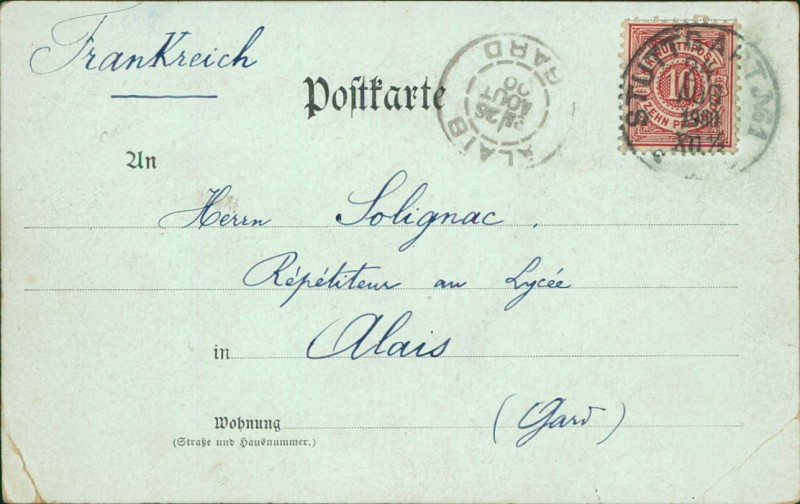 Frankreich
Postkarte
ALAIS GARD
26
AOUT
00
K. WÜRTT. POST
10
ZEHN PF
STUTTGART No 1
AUG
1900
An
Herrn Solignac.
Répétiteur au Lycée
in Alais
Wohnung (Gard)
(Straße und Hausnummer.)